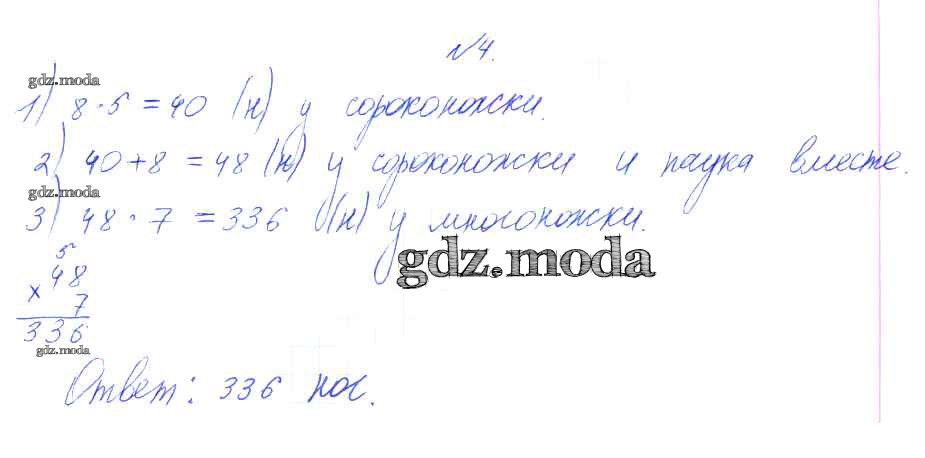 №4.
gdz.moda
1) 8·5=40 (н) у сороконожки.
2) 40+8=48 (н) у сороконожки и паука вместе.
gdz.moda
3) 48·7=336 (н) у многоножки.
gdz.moda
5
×48
7
336
gdz.moda
Ответ: 336 ног.